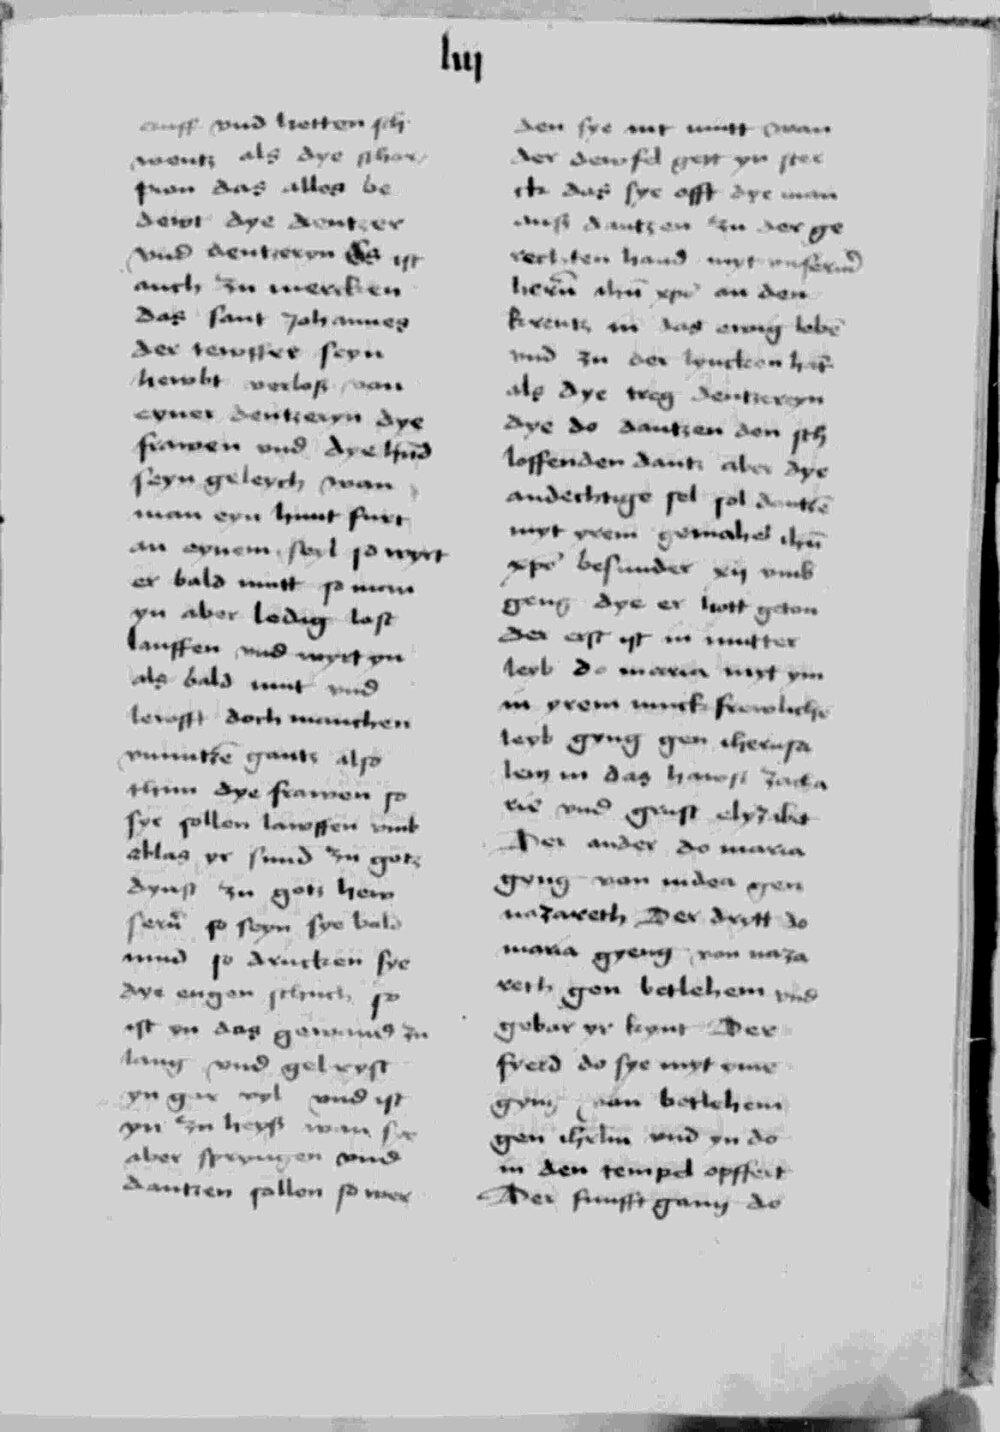 liij
auff vnd hetten sch
wentz als dye schor
pion das alles be
dewt dye dentzer
vnd dentzeryn Es ist
auch zu mercken
das sant Johannes
der tewffer seyn
hewbt verloß von
eyner dentzeryn dye
frawen vnd dye hu̅d
seyn geleych wan
man eyn hunt furt
an eynem seyl so wyrt
er bald mutt so man
yn aber ledig lost
lauffen vnd wyrt yn
als bald nint vnd
lewfft doch manchen
vnnutze̅ gantz also
thun dye frawen so
sye sollen lawffen vmb
ablas yr sund zu gotz
dynst zu gotz hew
seru̅ so seyn sye bald
mud so drucken sye
dye engen schuch so
ist yn das gewand zu
lang vnd geleyst
yn gar vyl vnd ist
yn zu heyß wan sye
aber springen vnd
dantzen sollen so wer
den sye nit mutt wan
der dewfel gett yn ster
ck das sye offt dye man
auß dantzen zu der ge
rechten hand myt vnserm̅
heru̅ ihu̅ xpo̅ an den
krentz in das ewig lebe̅
vnd zu der lyncken hat̅
als dye treg dentzeryn
dye do dantzen den sch
loffenden dantz aber dye
andechtige sel sol dantze̅
myt yrem gemahel ihu̅
xpo̅ besunder xij vmb
geng dye er hott geton
der erst ist in mutter
leyb do maria myt ym
in yrem iunckfrewliche̅
leyb gyng gen iherusa
lem in das hawß zacha
rie vnd grust elyzabet
Der ander do maria
gyng von iudea gen
nazareth Der drytt do
maria gyeng von naza
reth gen betlehem vnd
gebar yr kynt Der
fierd do sye myt yme
gyng von betlehem
gen ihrlm vnd yn do
in den tempel opffert
Der funfft gang do